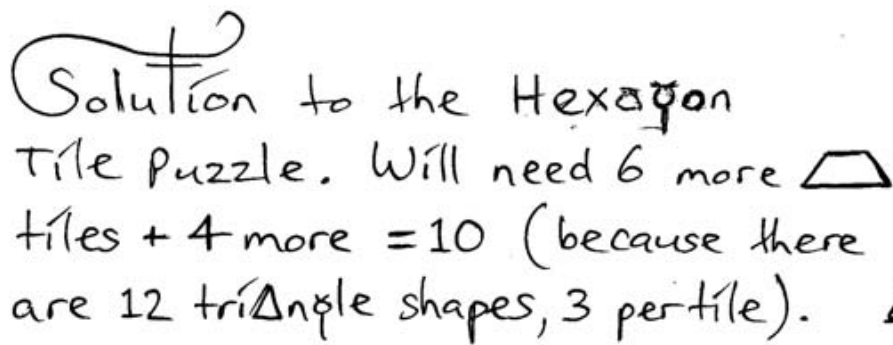 Solution to the Hexagon
Tile Puzzle. Will need 6 more
tiles + 4 more = 10 (because there
are 12 triangle shapes, 3 per tile).